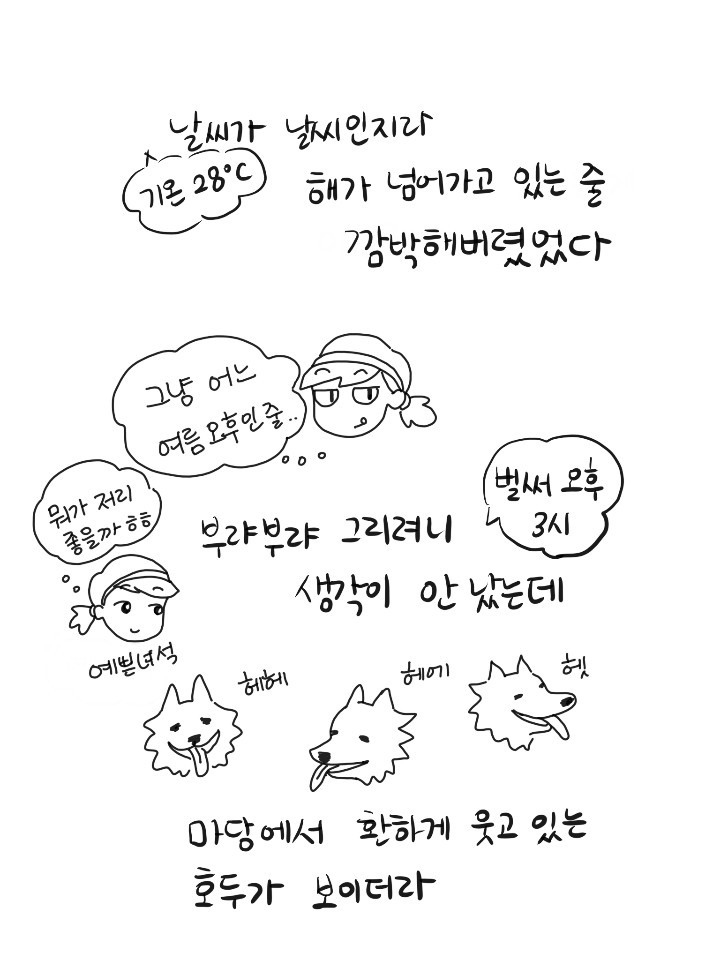 날씨가 날씨인지라
기온 28°C
해가 넘어가고 있는 줄
깜박해버렸었다
그냥 어느
여름 오후인 줄..
벌써 오후
3시
뭐가 저리
좋을까 ㅎㅎ
부랴부랴 그리려니
생각이 안 났는데
예쁜녀석
헤헤
헤에
헷
마당에서 환하게 웃고 있는
호두가 보이더라